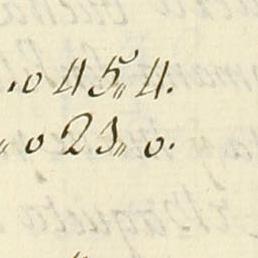 .0 45,, 4.
,, 0 23,, 0.